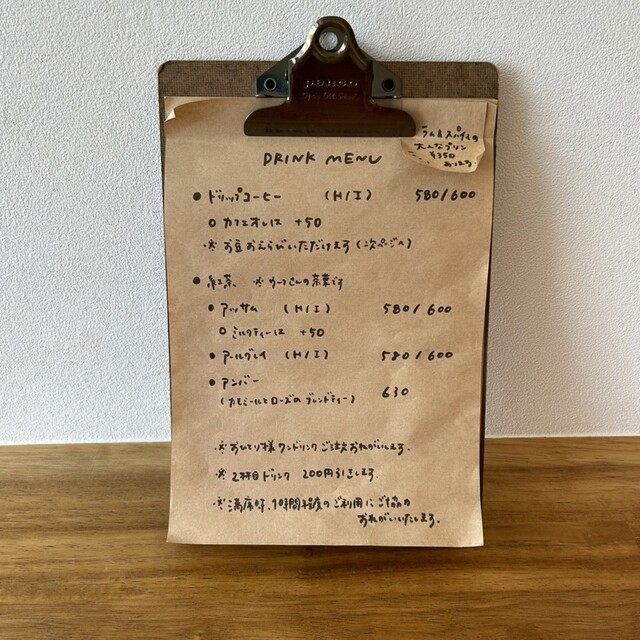 penco
DRINK MENU
ラム&スパイスの
大人なプリン
¥350
あります
● ドリップコーヒー (H/I) 580/600
○ カフェオレは +50
※ お豆おえらびいただけます(次ページへ)
● 紅茶、 ※ の茶葉です
● アッサム (H/I) 580/600
○ ミルクティーは +50
● アールグレイ (H/I) 580/600
● アンバー 630
(カモミールとローズのブレンドティー)
※ おひとり様ワンドリンクご注文おねがいします。
※ 2杯目ドリンク 200円引きします。
※ 満席時、1時間程度のご利用にご協力
おねがいいたします。